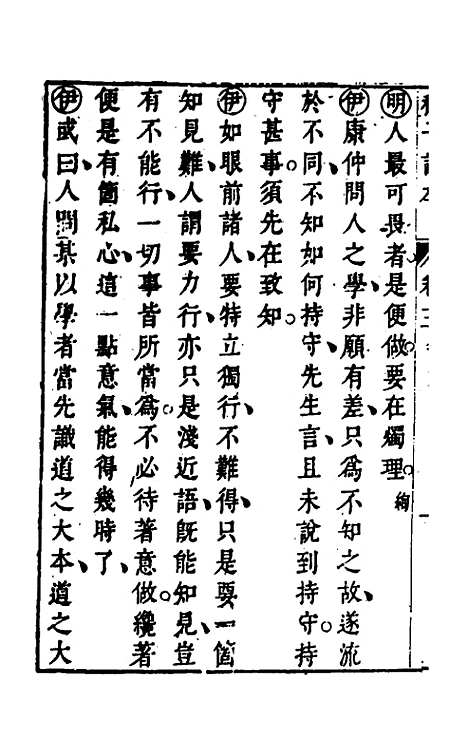 明人最可畏者是便做要在燭理絢
伊康仲問人之學非願有差只爲不知之故遂流
於不同不知如何持守先生言且未說到持守持
守甚事須先在致知
伊如眼前諸人要特立獨行不難得只是要一箇
知見難人謂要力行亦只是淺近語旣能知見豈
有不能行一切事皆所當爲不必待著意做纔著
便是有箇私心這一點意氣能得幾時了
伊或曰人問某以學者當先識道之大本道之大